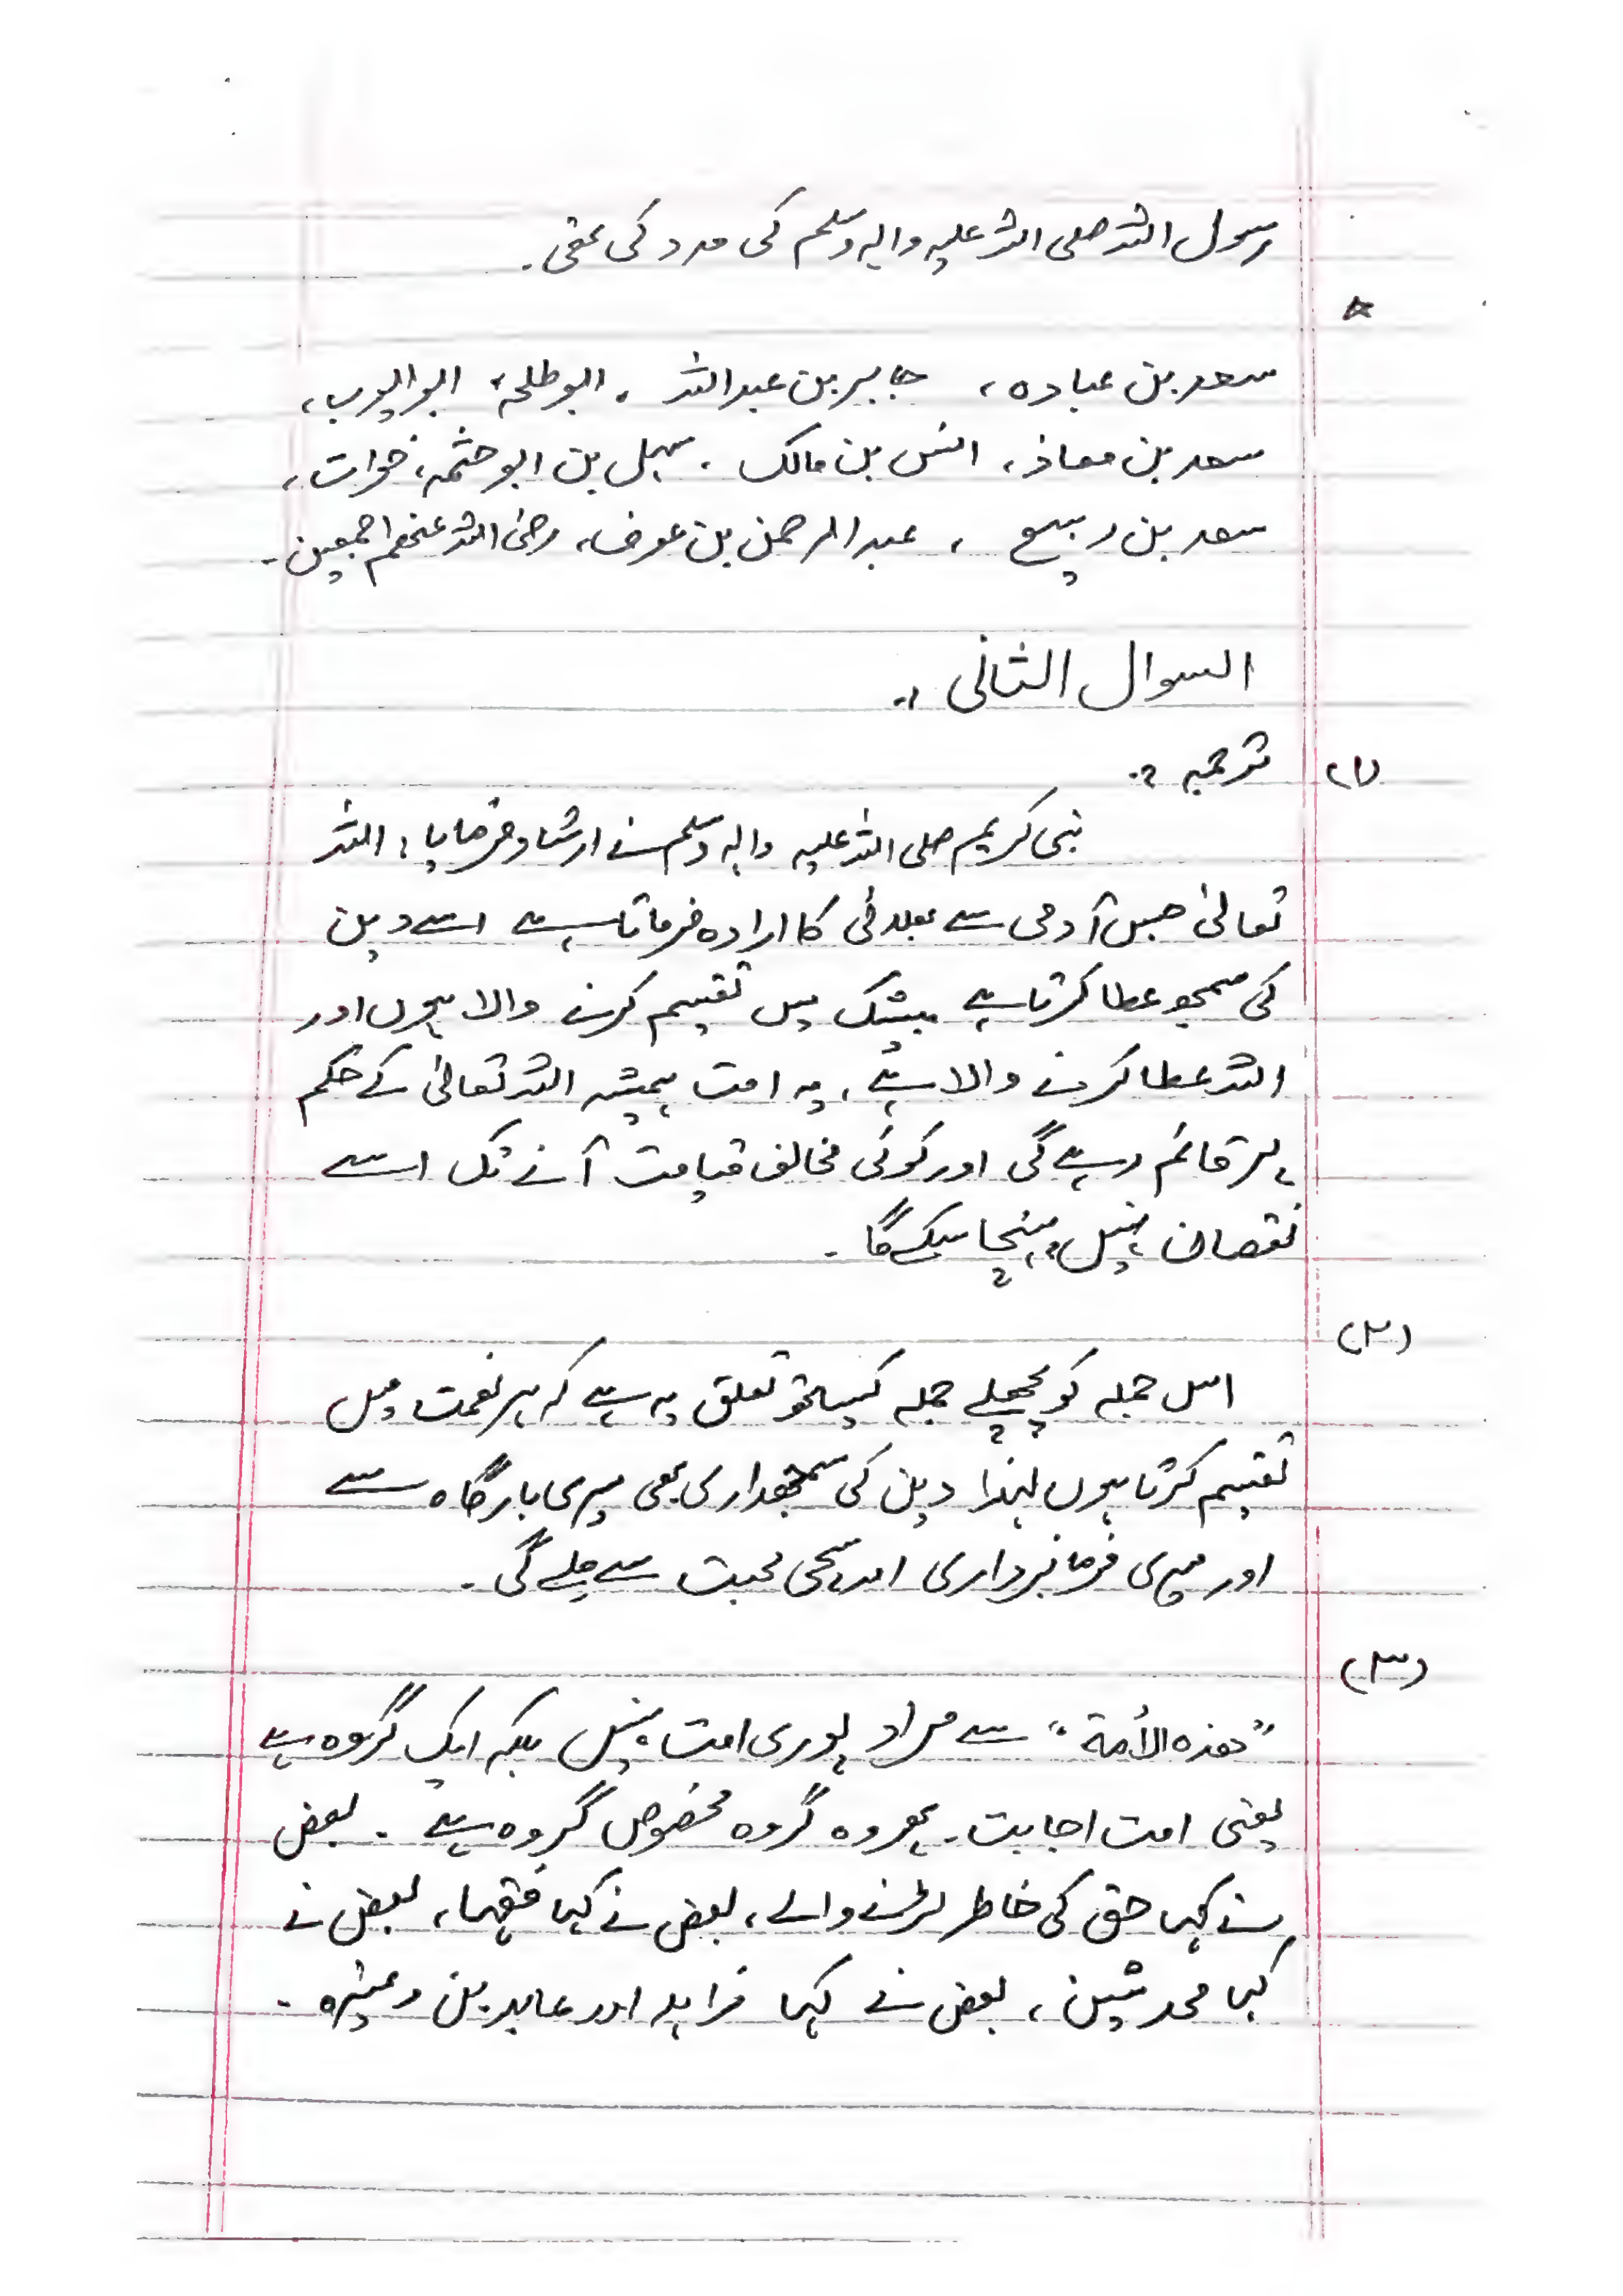 رسول اللہ صلی اللہ علیہ والہ وسلم کی مدد کی تھی۔
☆
سعد بن عبادہ، جابر بن عبداللہ، ابو طلحہ، ابو ایوب،
سعد بن معاذ، انس بن مالک، سہل بن ابو حثمہ، خوات،
سعد بن ربیع، عبدالرحمن بن عوف، رضی اللہ عنھم اجمعین۔
السوال الثانی :۔
(۱) ترجمہ :۔
نبی کریم صلی اللہ علیہ والہ وسلم نے ارشاد فرمایا: اللہ
تعالیٰ جس آدمی سے بھلائی کا ارادہ فرماتا ہے اسے دین
کی سمجھ عطا کرتا ہے بیشک میں تقسیم کرنے والا ہوں اور
اللہ عطا کرنے والا ہے، یہ امت ہمیشہ اللہ تعالیٰ کے حکم
پر قائم رہے گی اور کوئی مخالف قیامت آنے تک اسے
نقصان نہیں پہنچا سکے گا۔
(۲)
اس جملہ کو پچھلے جملہ کیساتھ تعلق یہ ہے کہ ہر نعمت میں
تقسیم کرتا ہوں لہذا دین کی سمجھداری بھی میری بارگاہ سے
اور میری فرمانبرداری اور سچی محبت سے ملے گی۔
(۳)
”ھذہ الأمة“ سے مراد پوری امت نہیں بلکہ ایک گروہ ہے
یعنی امت اجابت۔ پھر وہ گروہ مخصوص گروہ ہے۔ بعض
نے کہا حق کی خاطر لڑنے والے، بعض نے کہا فقہا، بعض نے
کہا محدثین، بعض نے کہا زاہد اور عابدین وغیرہ۔